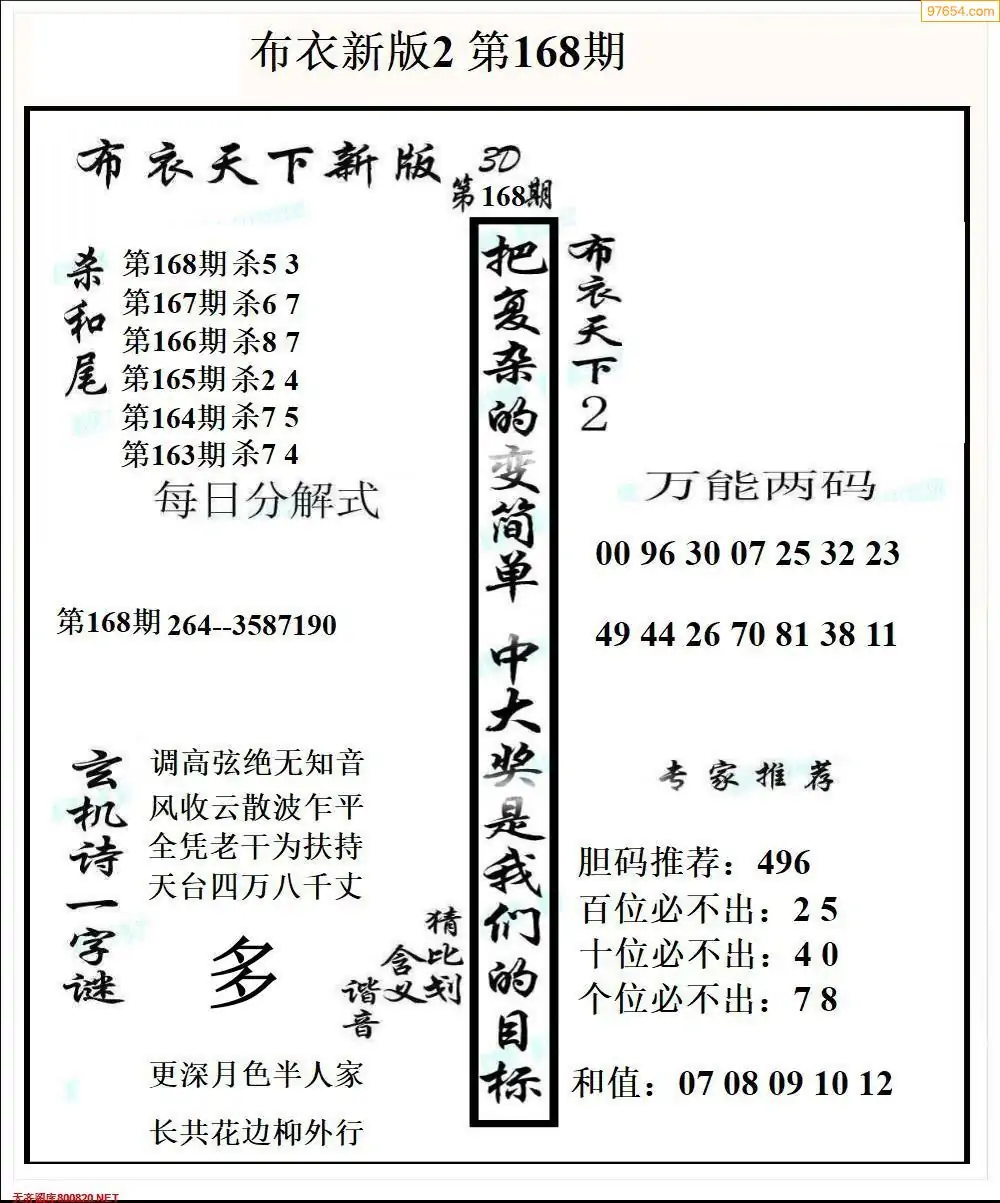 97654.com
布衣新版2 第168期
布衣天下新版 3D
第168期
杀和尾
第168期 杀5 3
第167期 杀6 7
第166期 杀8 7
第165期 杀2 4
第164期 杀7 5
第163期 杀7 4
每日分解式
第168期 264--3587190
玄机诗一字谜
调高弦绝无知音
风收云散波乍平
全凭老干为扶持
天台四万八千丈
多
猜比划
含义
谐音
更深月色半人家
长共花边柳外行
把复杂的变简单 中大奖是我们的目标
布衣天下2
万能两码
00 96 30 07 25 32 23
49 44 26 70 81 38 11
专家推荐
胆码推荐：496
百位必不出：2 5
十位必不出：4 0
个位必不出：7 8
和值：07 08 09 10 12
天齐图库800820.NET